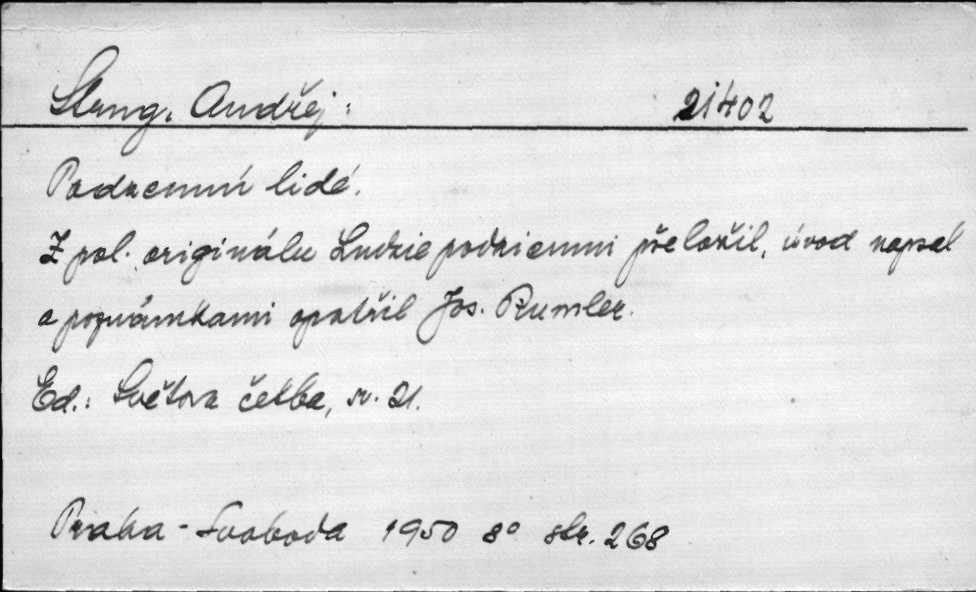 Strug. Andřej: 21402
Podzemní lidé.
Z pol. originálu Ludzie podziemni přeložil, úvod napsal
a poznámkami opatřil Jos. Rumler.
Ed.: Světová četba, sv. 21.
Praha - Svoboda 1950 8° str. 268